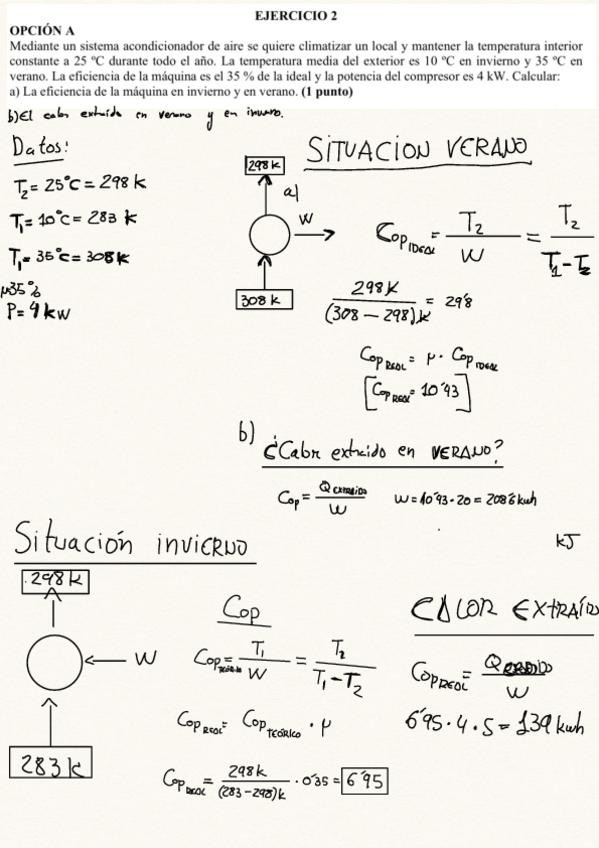 EJERCICIO 2
OPCIÓN A
Mediante un sistema acondicionador de aire se quiere climatizar un local y mantener la temperatura interior
constante a 25 ºC durante todo el año. La temperatura media del exterior es 10 ºC en invierno y 35 ºC en
verano. La eficiencia de la máquina es el 35 % de la ideal y la potencia del compresor es 4 kW. Calcular:
a) La eficiencia de la máquina en invierno y en verano. (1 punto)
b) El calor extraido en verano y en invierno.
Datos:
T2 = 25°C = 298 K
T1 = 10°C = 283 K
T1 = 35°C = 308 K
μ35%
P= 4 kW
SITUACION VERANO
298 K
a)
W
308 K
Cop IDEAL = T2 / W = T2 / T1 - T2
298 K / (308 - 298) K = 29'8
Cop REAL = μ · Cop IDEAL
[Cop REAL = 10'43]
b)
¿Calor extraido en VERANO?
Cop = Q EXTRAIDO / W W = 10'43 · 20 = 208'6 kwh
KJ
Situación INVIERNO
298 K
W
283 K
Cop
Cop TEÓRICO = T1 / W = T2 / T1 - T2
Cop REAL = Cop TEÓRICO · μ
Cop REAL = 298 K / (283 - 298) K · 0'35 = 6'95
CALOR EXTRAÍD
Cop REAL = / W
6'95 · 4 · 5 = 139 kwh